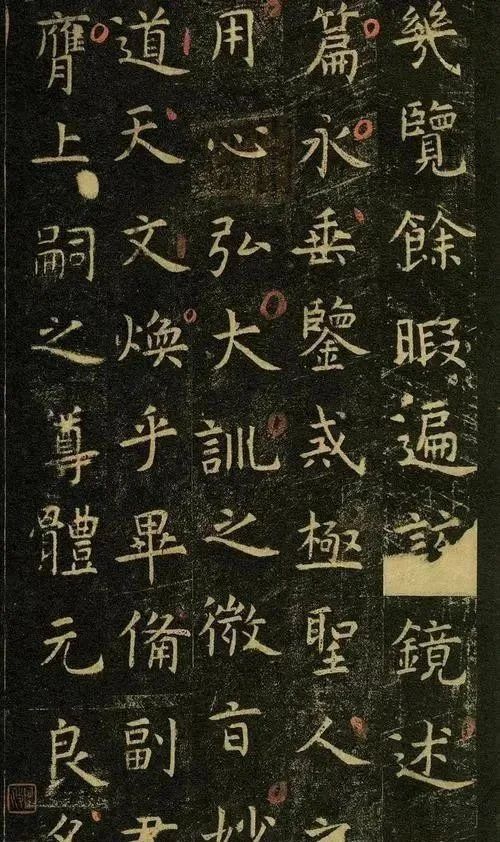 幾覽餘暇遍詃鏡述
篇永垂鑒戒極聖人之
用心弘大訓之微旨妙
道天文煥乎畢備副君
膺上嗣之尊體元良